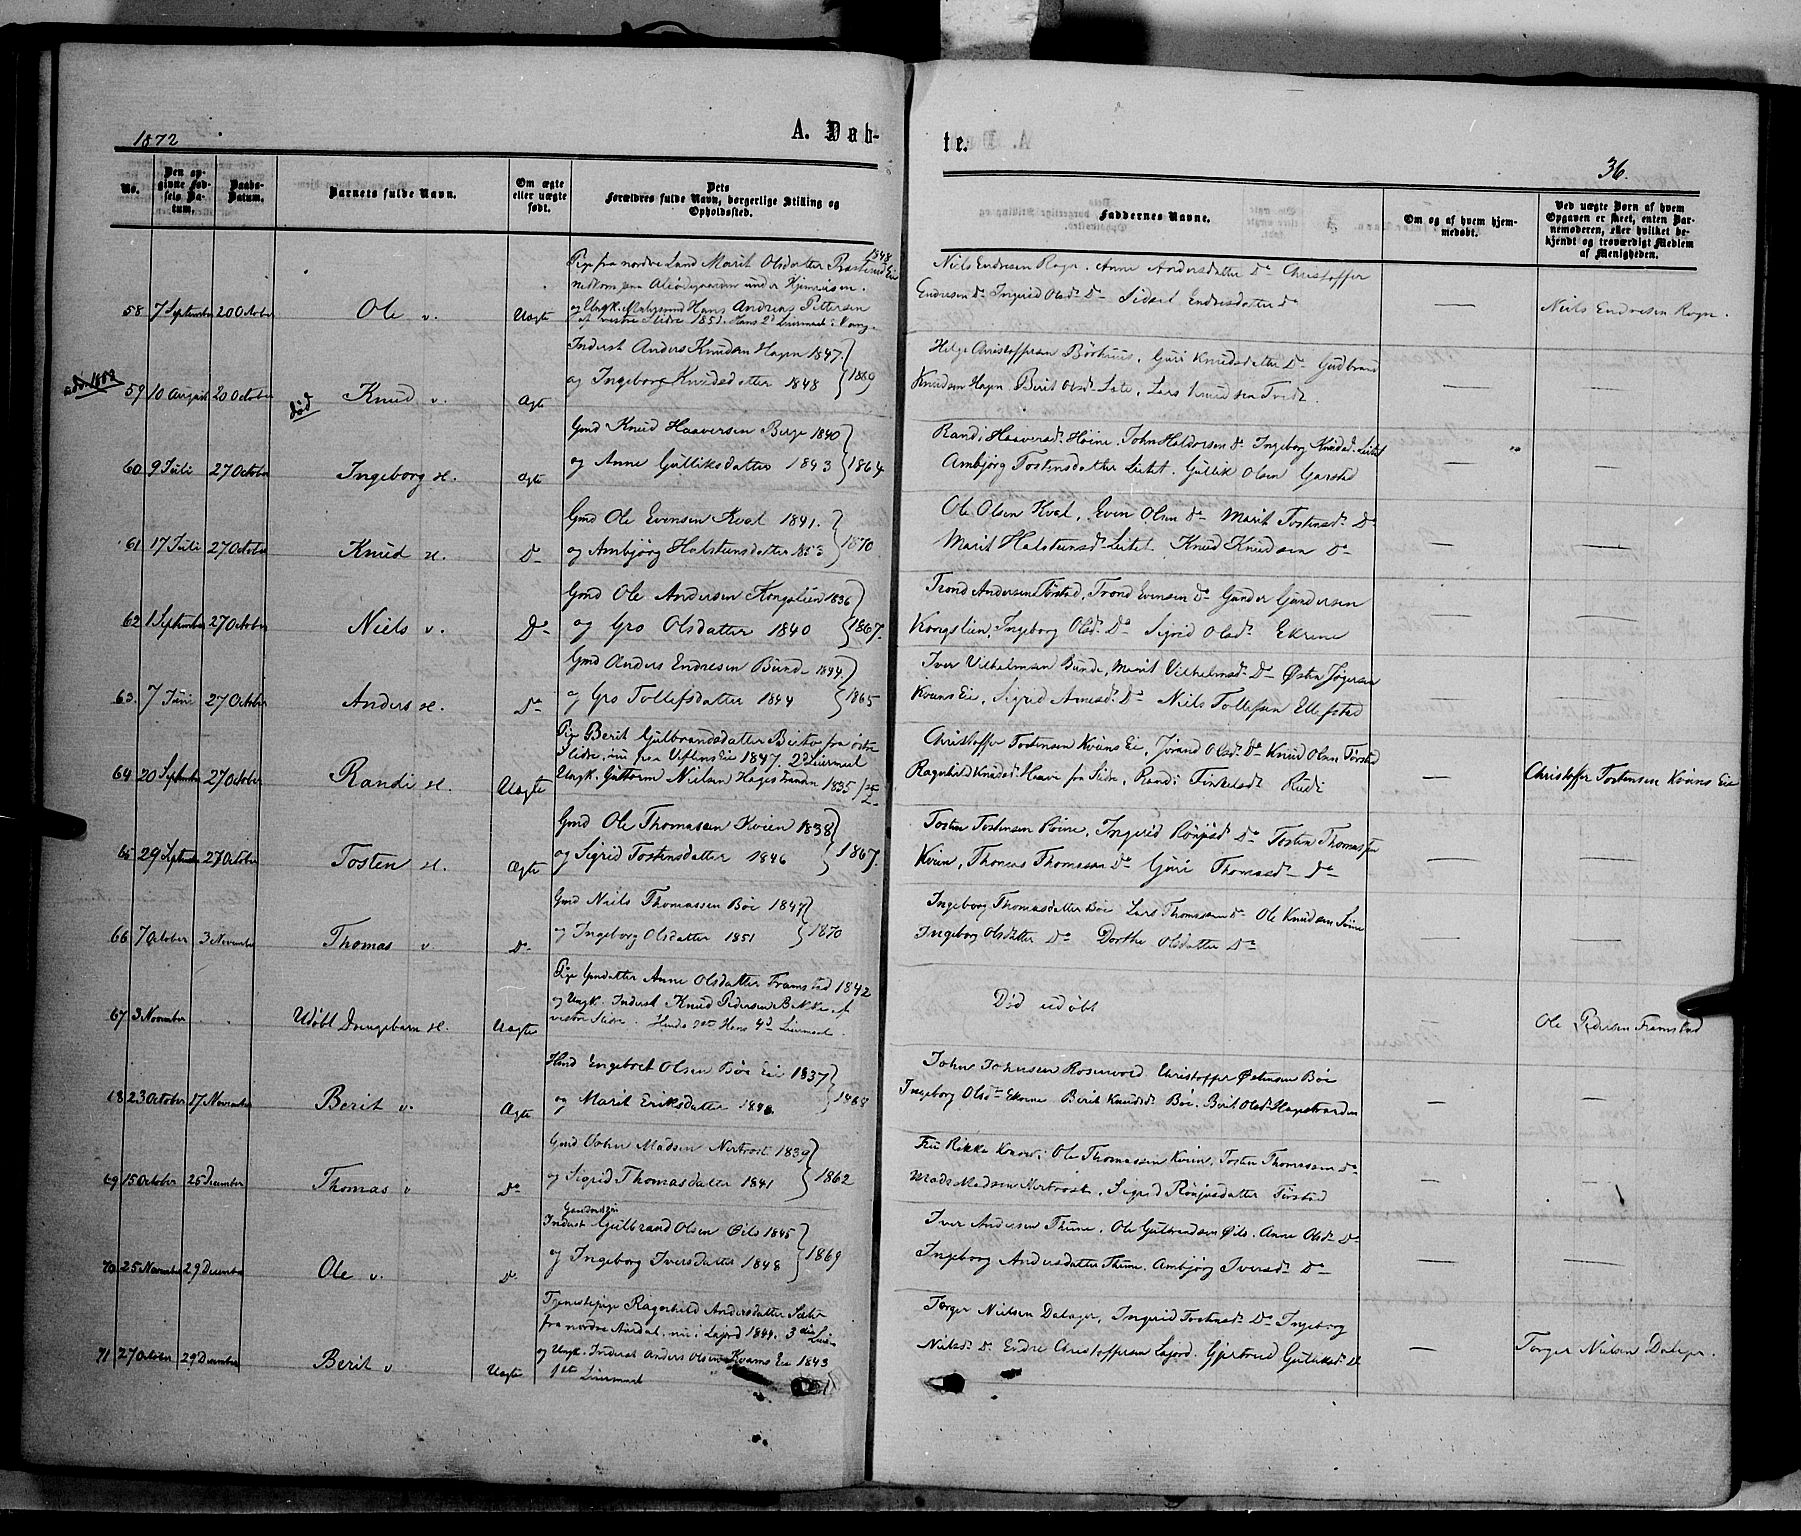 1872
A. Døb-
te.
36.
No.
Den opgivne Fødsels Datum.
Daabs-Datum.
Barnets fulde Navn.
Om ægte eller uægte født.
Dets Forældres fulde Navn, borgerlige Stilling og Opholdssted.
Faddernes Navne.
Om og af hvem hjemmedøbt.
Ved uægte Born af hvem Opgaven er skeet, enten Barnemoderen, eller hvilket bekjendt og troværdigt Medlem af Menigheden.
Pige fra nordre Land Marit Olsdatter 1848
58 7 September 20 October Ole v. Uægte og Ungk. Hans Andreas Pettersen
af vestre Slidre 1851. Hans 2d Leiermaal
Niels Endresen Rogn. Anne Andersdatter Do Christoffer
Endresen Do Ingrid Olsd. Do Sidsel Endresdatter Do — Niels Endresen Rogn.
Inderst Anders Knudsen Hagen 1847.
59 10 August 20 October død Knud v. Ægte og Ingeborg Knudsdatter 1848 1869
Helge Christoffersen Børhuus, Guri Knudsdatter Do Gudbrand
Knudsen Hagen, Berit Olsd. Lars Knudsen Tvedt. — —
Gmd Knud Haaversen Berge 1840
60 9 Juli 27 October Ingeborg d. Ægte og Anne Gulliksdatter 1843 1864
Randi Haaversd. Høine. John Haldorsen Do Ingeborg Knudsd. Leitet
Ambjørg Tostensdatter Leitet. Gullik Olsen Garstad — —
Gmd Ole Evensen Kval 1841.
61 17 Juli 27 October Knud d. Do og Ambjørg Halstensdatter 1853 1870
Ole Olsen Kval, Even Olsen Do Marit Tostensd. Do
Marit Halstensd. Leitet. Knud Knudsen Do — —
Gmd Ole Andersen Kongslien 1836
62 1 September 27 October Niels v. Do og Gro Olsdatter 1840 1867.
Trond Andersen Tørstad, Trond Evensen Do Gunder Gundersen
Kongslien, Ingeborg Olsd. Do Sigrid Olsd. Ekrene — —
Gmd Anders Endresen Bunde 1844.
63 7 Juni 27 October Anders d. Do og Gro Tollefsdatter 1844 1865
Iver Vilhelmsen Bunde, Marit Vilhelmsd. Do Østen
Kviens Eie, Sigrid Do Niels Tollefsen Ellefstad — —
Pige Berit Gulbrandsdatter Beito fra østre
Slidre, nu paa Eie 1847. 2d Leiermaal
64 20 September 27 October Randi d. Uægte Ungk. Guttorm Nielsen Hagestranden 1835
Christoffer Tostensen Kviens Eie, Jørand Olsd. Do Knud Olsen Tørstad
Ragnhild Knudsd. Haave fra Slidre, Randi Tinkelsd. Rudi — Christoffer Tostensen Kviens Eie
Gmd Ole Thomassen Kvien 1838
65 29 September 27 October Tosten d. Ægte og Sigrid Tostensdatter 1846 1867.
Tosten Tostensen Ingerid Do Tosten Thomassen
Kvien, Thomas Thomassen Do Guri Thomasd. Do — —
Gmd Niels Thomassen Bøe 1847
66 7 October 3 November Thomas v. Do og Ingeborg Olsdatter 1851 1870
Ingeborg Thomasdatter Bøe Lars Thomassen Do Ole Knudsen
Ingeborg Olsdatter Do Dorthe Olsdatter Do — —
Pige Anne Olsdatter Framstad 1842
og Ungk. Inderst Knud Pedersen Bakke af
67 3 November Udøbt Drengebarn d. Uægte vestre Slidre. Hendes Hans 4d Leiermaal.
Død udøbt — Ole Pedersen Framstad
Hmd Engebret Olsen Bøe Eie 1837
68 23 October 17 November Berit v. Ægte og Marit Eriksdatter 1868
John Johnsen Rosenvold. Christoffer Østensen Bøe
Ingeborg Olsd. Ekrene Berit Knudsd. Bøe. Berit Olsd. Hagestranden — —
Gmd John Madsen Nertrost 1839
69 15 October 26 December Thomas v Do og Sigrid Thomasdatter 1841 1862
Fru Rikke Ole Thomassen Kvien, Tosten Thomassen Do
Mads Madsen Nertrost, Sigrid Tørstad — —
Inderst Gulbrand Olsen Øils 1845
70 25 November 29 December Ole v. Do og Ingeborg Iversdatter 1848 1869
Iver Andersen Thune, Ole Gulbrandsen Øils. Anne Olsd. Do
Ingeborg Andersdatter Thune. Ambjørg Iversd. Do — —
Tjenestepige Ragnhild Andersdatter
fra nordre Aurdal, nu i Lajord 1844. 3die
og Ungk. Inderst Anders Olsen Kvams Eie 1843
71 27 October 29 December Berit v Uægte 1ste Leiermaal
Torger Nielsen Dalager, Ingerid Tostensd. Do Ingeborg
Nielsd. Do Endre Christoffersen Lajord. Gjertrud Gulliksd. Do — Torger Nielsen Dalager.